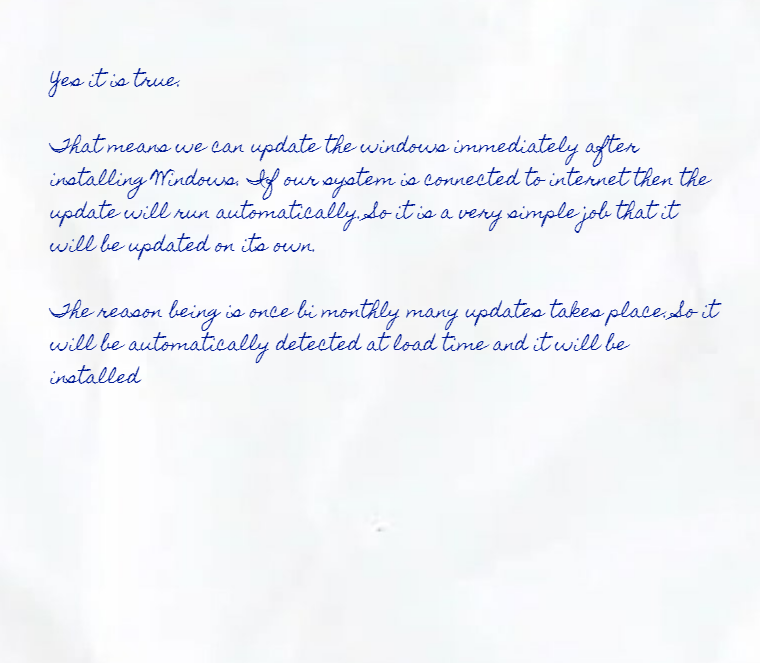 Yes it is true.
That means we can update the windows immediately after
installing Windows. If our system is connected to internet then the
update will run automatically.So it is a very simple job that it
will be updated on its own.
The reason being is once bi monthly many updates takes place.So it
will be automatically detected at load time and it will be
installed